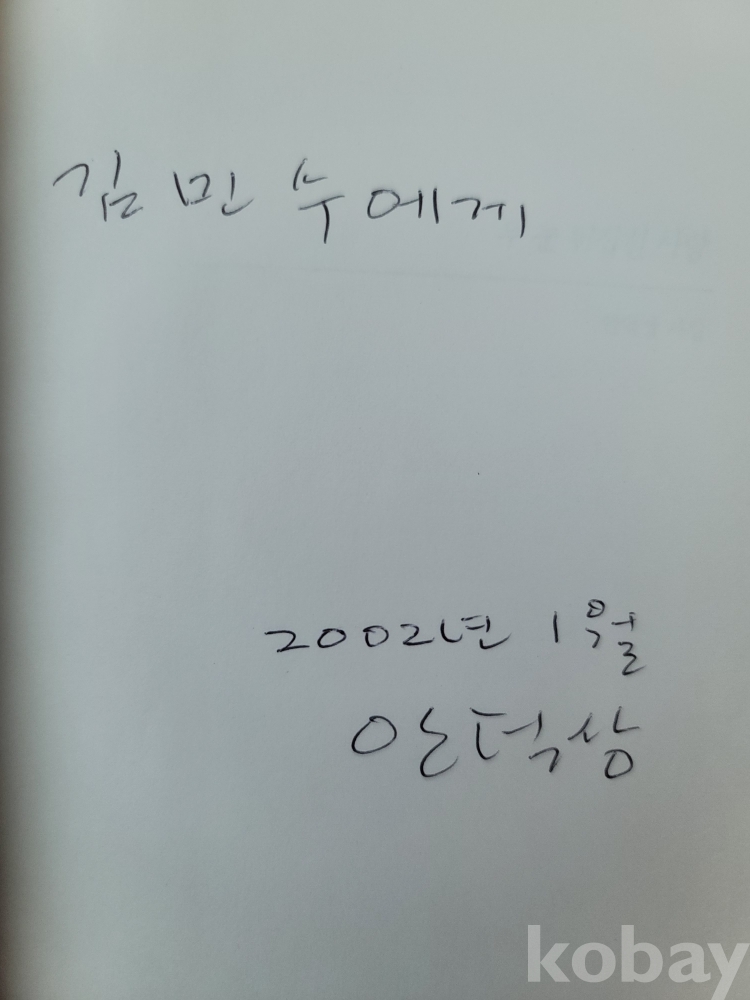 김민수에게
2002년 1월
안덕상
kobay